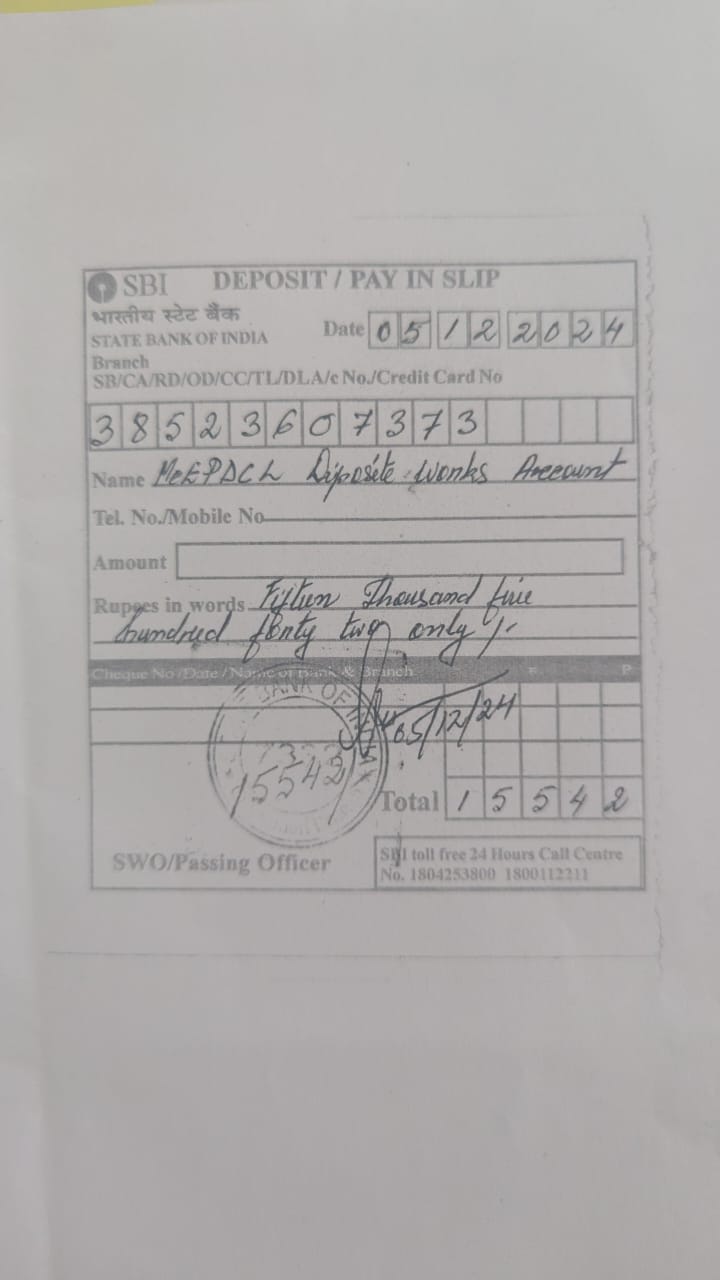 SBI DEPOSIT / PAY IN SLIP
भारतीय स्टेट बैंक
STATE BANK OF INDIA
Date 05 12 2024
Branch
SB/CA/RD/OD/CC/TL/DLA/c No./Credit Card No
38523607373
Name MeEPDCL Diposite works Account
Tel. No./Mobile No
Amount
Rupees in words Fifteen Thousand five
hundred forty two only/-
Cheque No /Date / Name of Bank & Branch P
BANK OF
05/12/24
15542
Total 15542
SWO/Passing Officer
SBI toll free 24 Hours Call Centre
No. 1804253800 1800112211